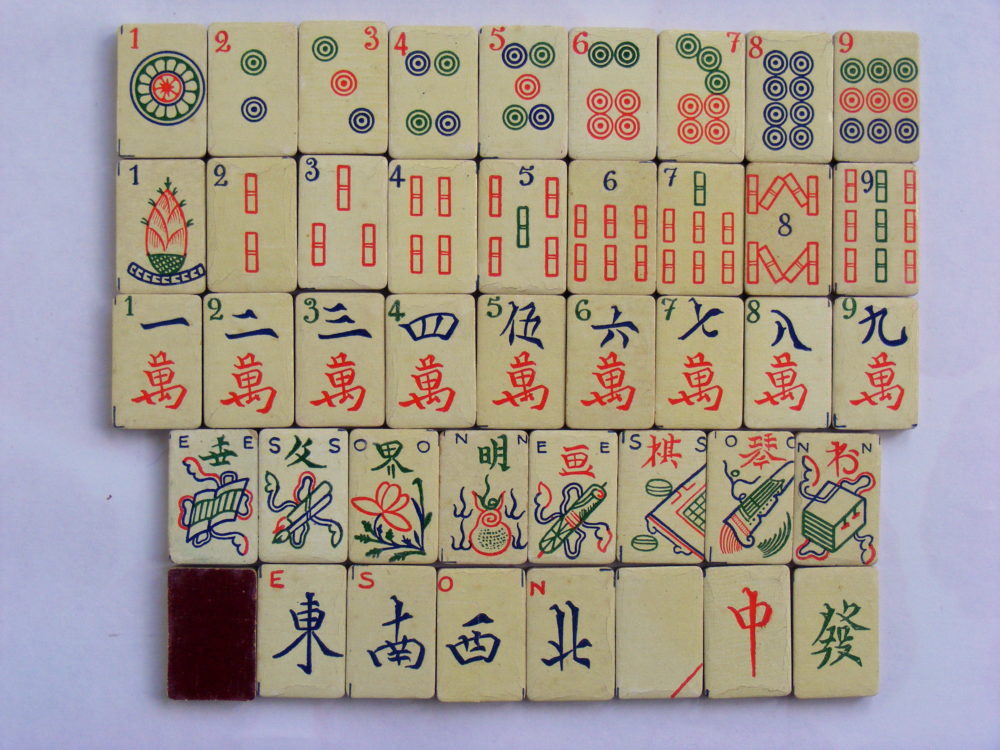 1 2 3 4 5 6 7 8 9
1 2 3 4 5 6 7 8 9
1 2 3 4 5 6 7 8 9
一 二 三 四 伍 六 七 八 九
萬 萬 萬 萬 萬 萬 萬 萬 萬
E E S S O O N N E E S S O O N N
世 文 界 明 画 棋 琴 书
E S O N
東 南 西 北 中 發